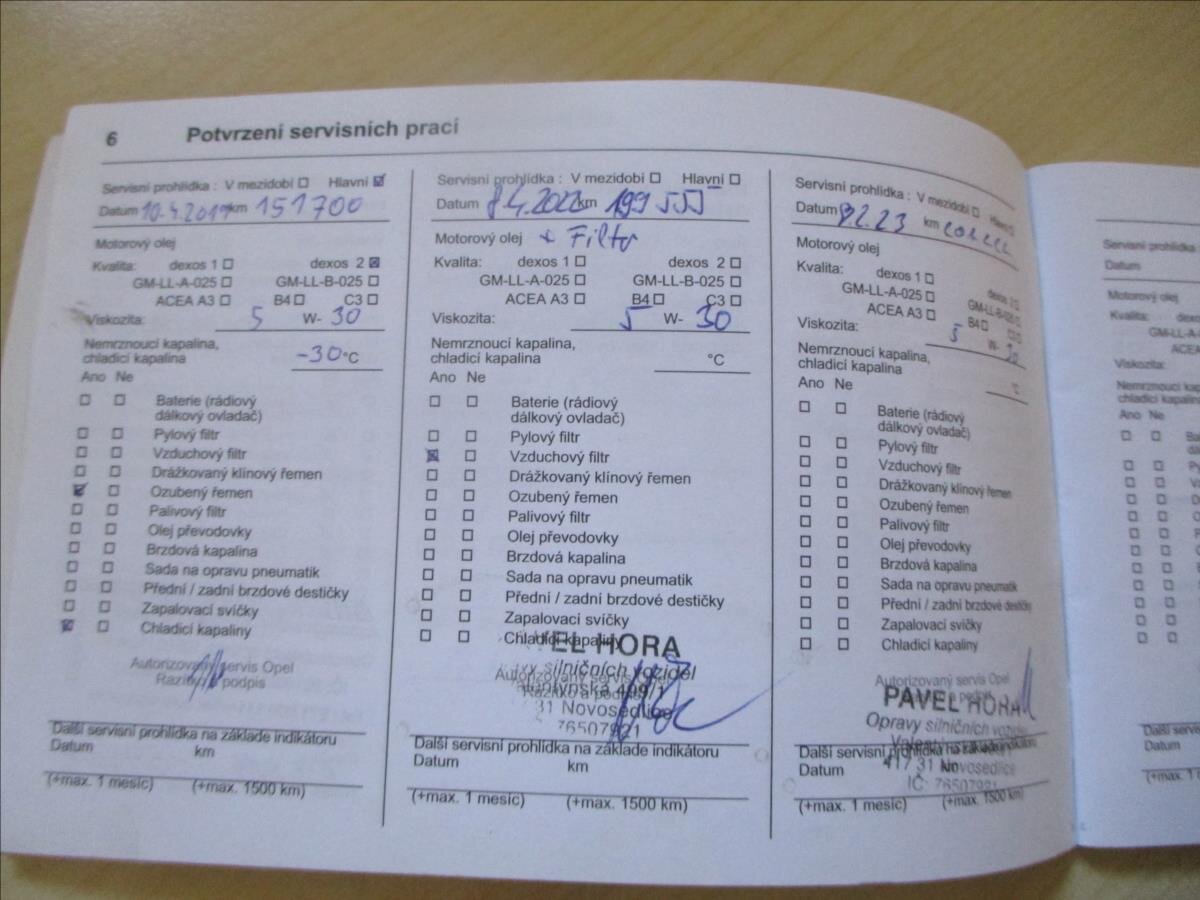 6 Potvrzení servisních prací
Servisní prohlídka : V mezidobí ☐ Hlavní ☑
Datum 10.4.2019 km 151700
Motorový olej
Kvalita: dexos 1 ☐ dexos 2 ☒
GM-LL-A-025 ☐ GM-LL-B-025 ☐
ACEA A3 ☐ B4 ☐ C3 ☐
Viskozita: 5 W- 30
Nemrznoucí kapalina,
chladicí kapalina -30 °C
Ano Ne
☐ ☐ Baterie (rádiový
dálkový ovladač)
☐ ☐ Pylový filtr
☐ ☐ Vzduchový filtr
☐ ☐ Drážkovaný klínový řemen
☑ ☐ Ozubený řemen
☐ ☐ Palivový filtr
☐ ☐ Olej převodovky
☐ ☐ Brzdová kapalina
☐ ☐ Sada na opravu pneumatik
☐ ☐ Přední / zadní brzdové destičky
☐ ☐ Zapalovací svíčky
☒ ☐ Chladicí kapaliny
Autorizovaný servis Opel
Razítko a podpis
Další servisní prohlídka na základe indikátoru
Datum km
(+max. 1 mesíc) (+max. 1500 km)
Servisní prohlídka : V mezidobí ☐ Hlavní ☐
Datum 8.4.2022 km 199 555
Motorový olej + Filtr
Kvalita: dexos 1 ☐ dexos 2 ☐
GM-LL-A-025 ☐ GM-LL-B-025 ☐
ACEA A3 ☐ B4 ☐ C3 ☐
Viskozita: 5 W- 30
Nemrznoucí kapalina,
chladicí kapalina °C
Ano Ne
☐ ☐ Baterie (rádiový
dálkový ovladač)
☐ ☐ Pylový filtr
☒ ☐ Vzduchový filtr
☐ ☐ Drážkovaný klínový řemen
☐ ☐ Ozubený řemen
☐ ☐ Palivový filtr
☐ ☐ Olej převodovky
☐ ☐ Brzdová kapalina
☐ ☐ Sada na opravu pneumatik
☐ ☐ Přední / zadní brzdové destičky
☐ ☐ Zapalovací svíčky
☐ ☐ Chladicí kapaliny
EL HORA
silničních vozidel
Autorizovaný servis Opel
Razítko a podpis
499/1
31 Novosedlice
76507921
Další servisní prohlídka na základe indikátoru
Datum km
(+max. 1 mesíc) (+max. 1500 km)
Servisní prohlídka : V mezidobí ☐ Hlavní ☐
Datum 8.2.23 km
Motorový olej
Kvalita: dexos 1 ☐ dexos 2 ☐
GM-LL-A-025 ☐ GM-LL-B-025 ☐
ACEA A3 ☐ B4 ☐
Viskozita: 5 W- 30
Nemrznoucí kapalina,
chladicí kapalina °C
Ano Ne
☐ ☐ Baterie (rádiový
dálkový ovladač)
☐ ☐ Pylový filtr
☐ ☐ Vzduchový filtr
☐ ☐ Drážkovaný klínový řemen
☐ ☐ Ozubený řemen
☐ ☐ Palivový filtr
☐ ☐ Olej převodovky
☐ ☐ Brzdová kapalina
☐ ☐ Sada na opravu pneumatik
☐ ☐ Přední / zadní brzdové destičky
☐ ☐ Zapalovací svíčky
☐ ☐ Chladicí kapaliny
Autorizovaný servis Opel
PAVEL HORA
Opravy silničních vozidel
Další servisní prohlídka na základe indikátoru
Datum km
417 31 Novosedlice
IČ: 76507921
(+max. 1 mesíc) (+max. 1500 km)
Servisní prohlídka
Datum
Motorový olej
Kvalita:
GM-LL-A
ACEA
Viskozita:
Nemrznoucí kapalina
chladicí kapalina
Ano Ne
Další servisní
Datum
(+max. 1